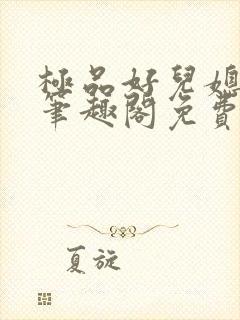 極品好兒媳
筆趣閣免費
夏旋